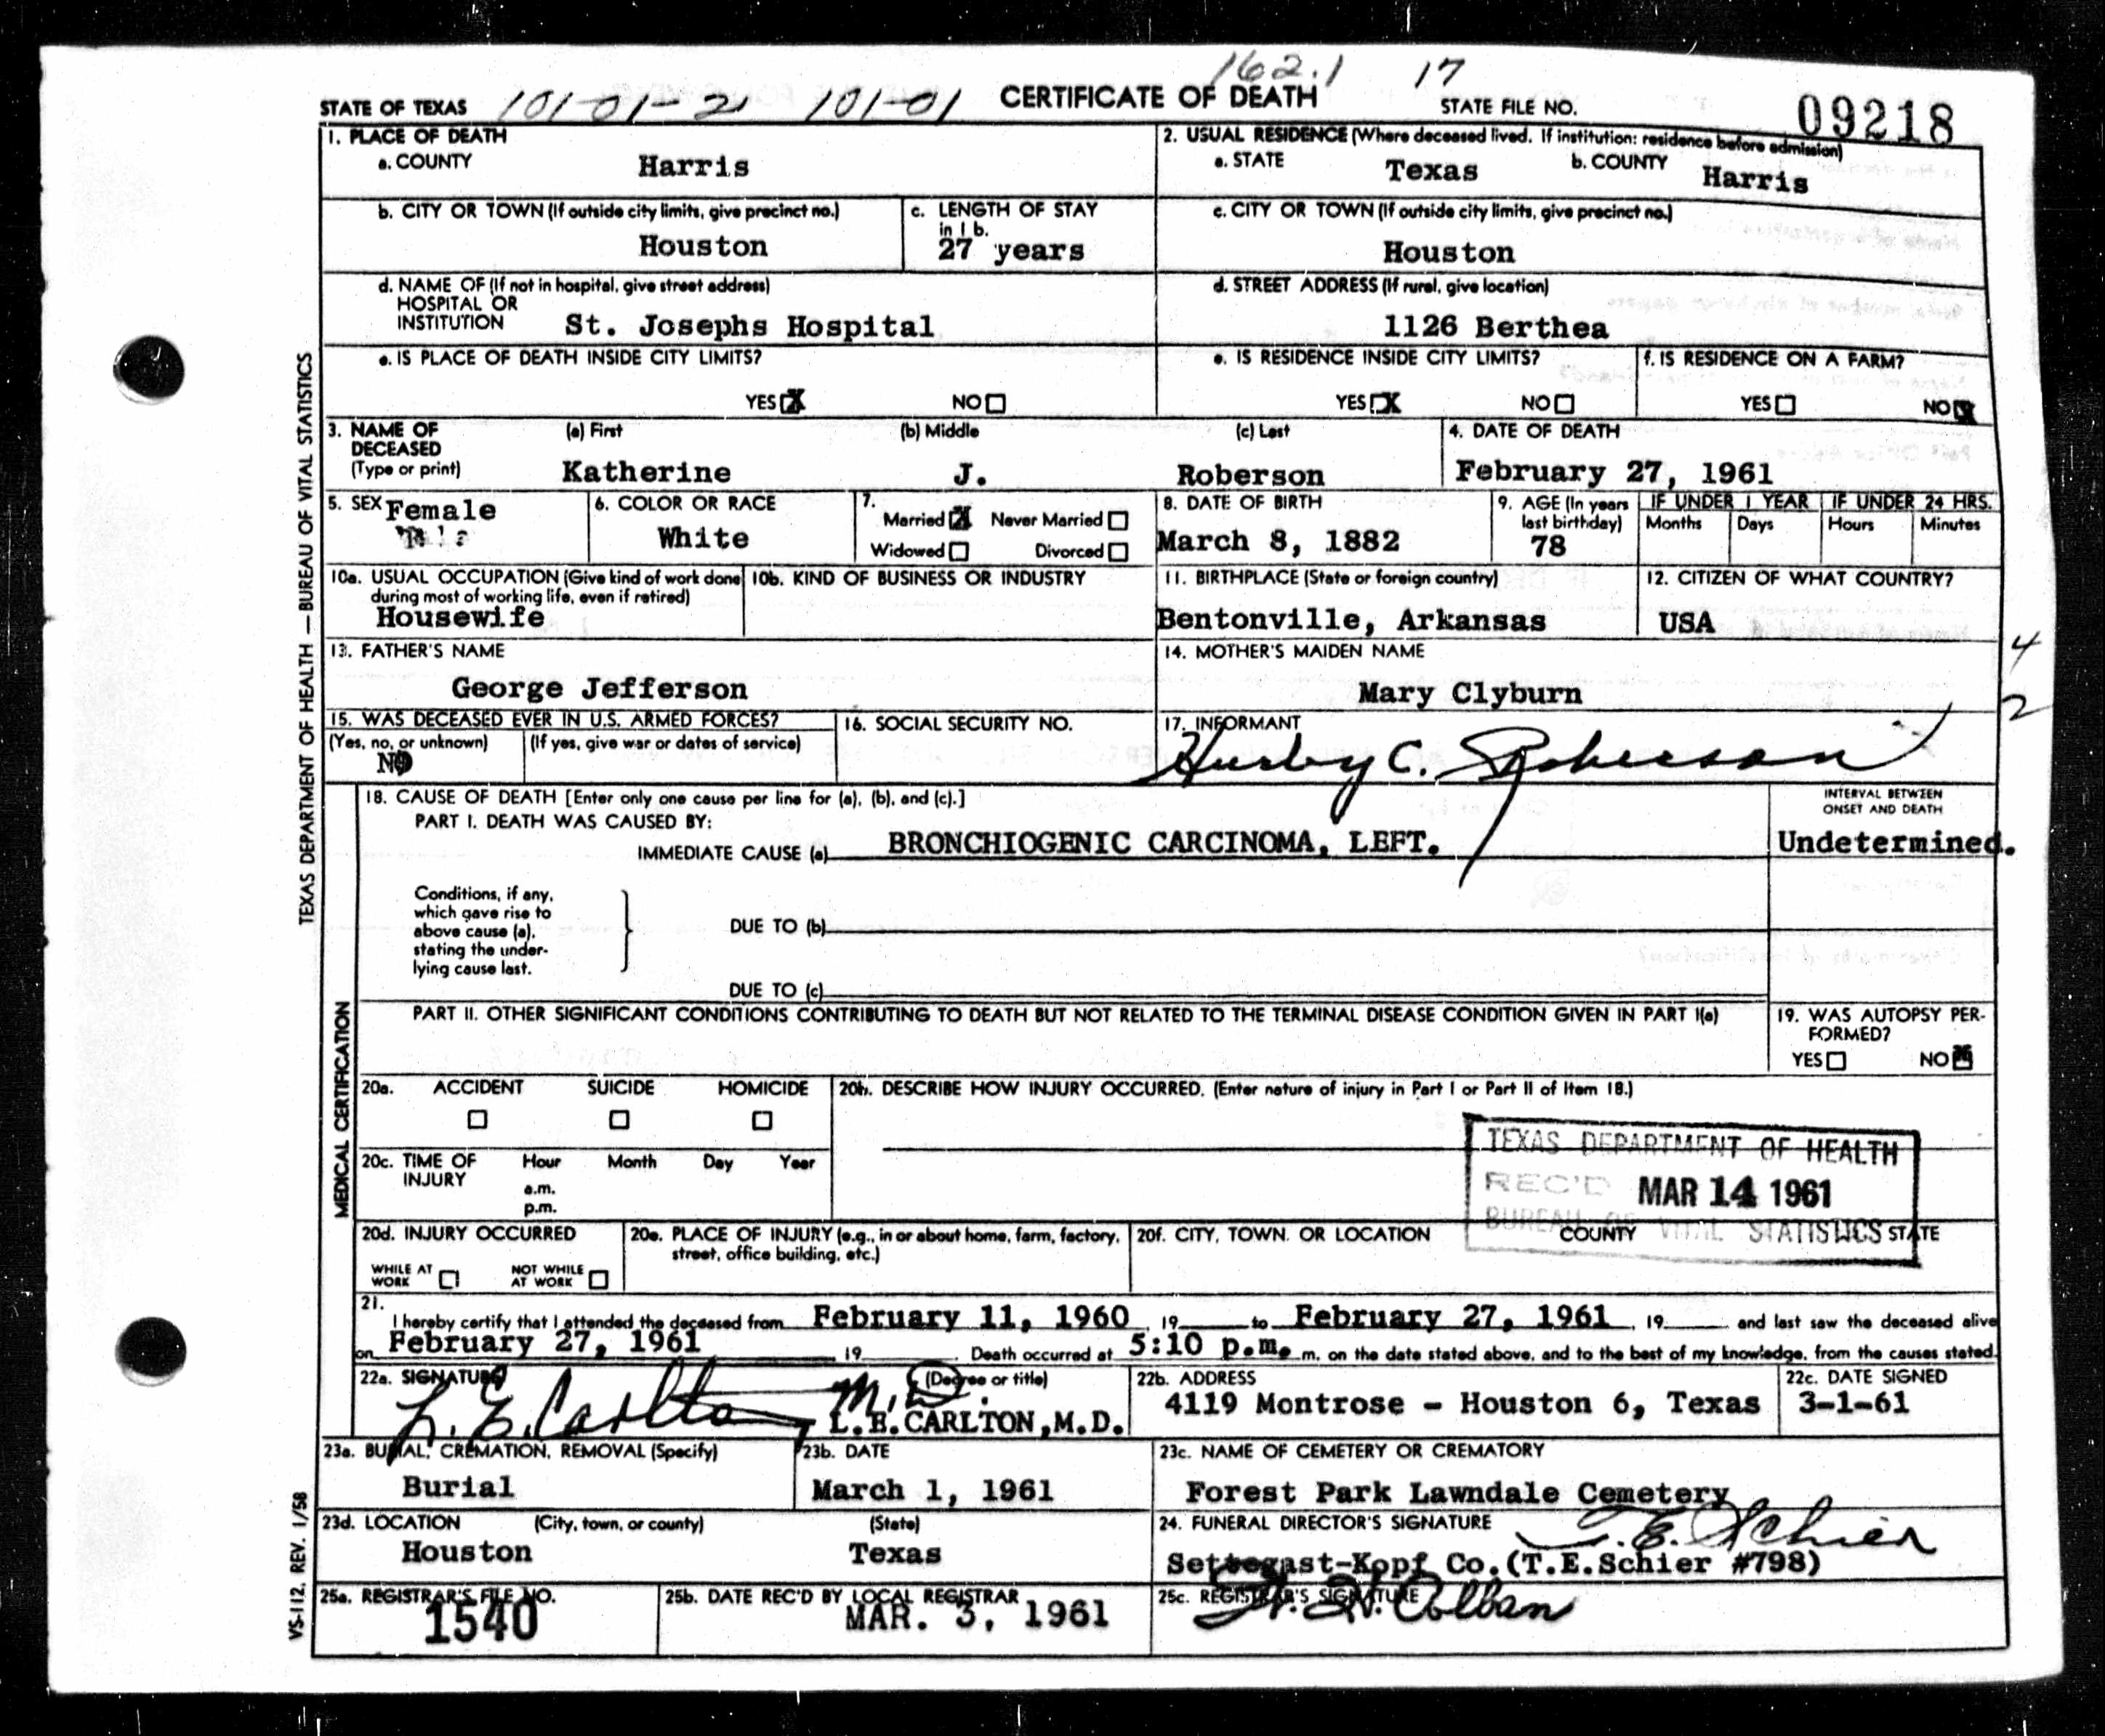 162.1 17
STATE OF TEXAS 101-01-2 101-01 CERTIFICATE OF DEATH STATE FILE NO. 09218
1. PLACE OF DEATH
a. COUNTY Harris
2. USUAL RESIDENCE (Where deceased lived. If institution: residence before admission)
a. STATE Texas b. COUNTY Harris
b. CITY OR TOWN (If outside city limits, give precinct no.)
Houston
c. LENGTH OF STAY
in 1 b.
27 years
c. CITY OR TOWN (If outside city limits, give precinct no.)
Houston
d. NAME OF (If not in hospital, give street address)
HOSPITAL OR
INSTITUTION St. Josephs Hospital
d. STREET ADDRESS (If rural, give location)
1126 Berthea
e. IS PLACE OF DEATH INSIDE CITY LIMITS?
YES X NO
e. IS RESIDENCE INSIDE CITY LIMITS?
YES X NO
f. IS RESIDENCE ON A FARM?
YES NO X
3. NAME OF
DECEASED
(Type or print)
(a) First (b) Middle (c) Last
Katherine J. Roberson
4. DATE OF DEATH
February 27, 1961
5. SEX Female
6. COLOR OR RACE
White
7.
Married X Never Married
Widowed Divorced
8. DATE OF BIRTH
March 8, 1882
9. AGE (In years
last birthday)
78
IF UNDER 1 YEAR
Months Days
IF UNDER 24 HRS.
Hours Minutes
10a. USUAL OCCUPATION (Give kind of work done
during most of working life, even if retired)
Housewife
10b. KIND OF BUSINESS OR INDUSTRY
11. BIRTHPLACE (State or foreign country)
Bentonville, Arkansas
12. CITIZEN OF WHAT COUNTRY?
USA
4
2
13. FATHER'S NAME
George Jefferson
14. MOTHER'S MAIDEN NAME
Mary Clyburn
15. WAS DECEASED EVER IN U.S. ARMED FORCES?
(Yes, no, or unknown) (If yes, give war or dates of service)
NO
16. SOCIAL SECURITY NO.
17. INFORMANT
C. Roberson
18. CAUSE OF DEATH [Enter only one cause per line for (a), (b), and (c).]
PART I. DEATH WAS CAUSED BY:
IMMEDIATE CAUSE (a) BRONCHIOGENIC CARCINOMA, LEFT.
INTERVAL BETWEEN
ONSET AND DEATH
Undetermined.
Conditions, if any,
which gave rise to
above cause (a),
stating the under-
lying cause last.
DUE TO (b)
DUE TO (c)
PART II. OTHER SIGNIFICANT CONDITIONS CONTRIBUTING TO DEATH BUT NOT RELATED TO THE TERMINAL DISEASE CONDITION GIVEN IN PART I(a)
19. WAS AUTOPSY PER-
FORMED?
YES NO X
20a. ACCIDENT SUICIDE HOMICIDE
20b. DESCRIBE HOW INJURY OCCURRED. (Enter nature of injury in Part I or Part II of Item 18.)
20c. TIME OF
INJURY
Hour Month Day Year
a.m.
p.m.
TEXAS DEPARTMENT OF HEALTH
REC'D MAR 14 1961
BUREAU OF VITAL STATISTICS
20d. INJURY OCCURRED
WHILE AT
WORK
NOT WHILE
AT WORK
20e. PLACE OF INJURY (e.g., in or about home, farm, factory,
street, office building, etc.)
20f. CITY, TOWN, OR LOCATION COUNTY STATE
21.
I hereby certify that I attended the deceased from February 11, 1960, 19 to February 27, 1961, 19 and last saw the deceased alive
on February 27, 1961 19 . Death occurred at 5:10 p.m. m, on the date stated above, and to the best of my knowledge, from the causes stated.
22a. SIGNATURE (Degree or title)
L. E. Carlton M.D.
L.E.CARLTON,M.D.
22b. ADDRESS
4119 Montrose - Houston 6, Texas
22c. DATE SIGNED
3-1-61
23a. BURIAL, CREMATION, REMOVAL (Specify)
Burial
23b. DATE
March 1, 1961
23c. NAME OF CEMETERY OR CREMATORY
Forest Park Lawndale Cemetery
23d. LOCATION (City, town, or county) (State)
Houston Texas
24. FUNERAL DIRECTOR'S SIGNATURE T. E. Schier
Settegast-Kopf Co.(T.E.Schier #798)
25a. REGISTRAR'S FILE NO.
1540
25b. DATE REC'D BY LOCAL REGISTRAR
MAR. 3, 1961
25c. REGISTRAR'S SIGNATURE
TEXAS DEPARTMENT OF HEALTH — BUREAU OF VITAL STATISTICS
MEDICAL CERTIFICATION
VS-112. REV. 1/58